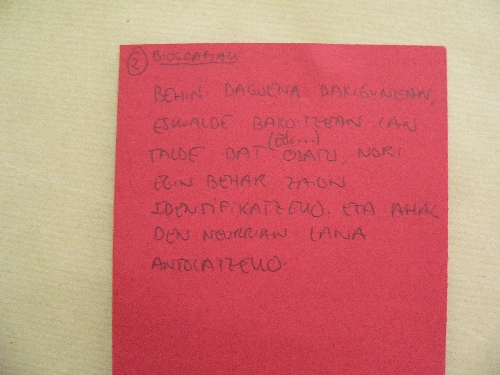 2 BIOGRAFIAK
BEHIN DAGOENA DAKIGUNEAN,
ESKUALDE BAKOITZEAN LAN
(EDO...)
TALDE BAT OSATU, NORI
EGIN BEHAR ZAION
IDENTIFIKATZEKO. ETA AHAL
DEN NEURRIAN LANA
ANTOLATZEKO.